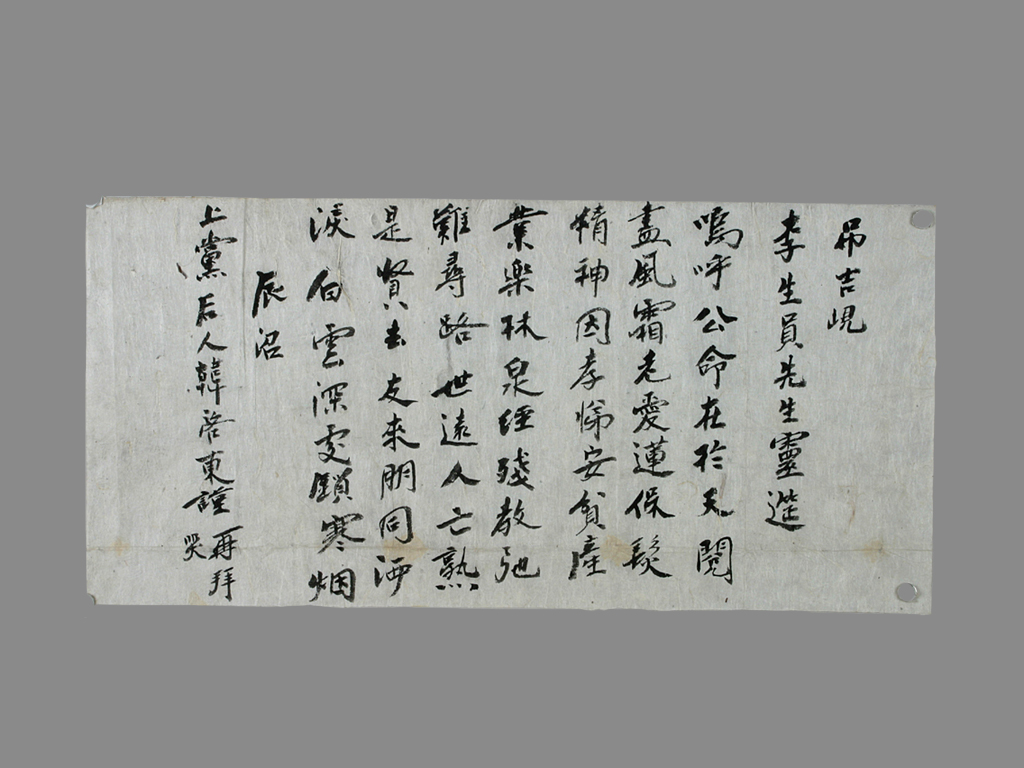 吊吉峴
李生員先生靈筵
嗚呼公命在於天閱
盡風霜老愛蓮保髮
精神因孝悌安貧産
業樂林泉經殘敎弛
難尋路世遠人亡熟
是賢去友來朋同洒
淚白雲深處鎖寒烟
辰沼
上黨后人韓洛東謹
再拜
哭